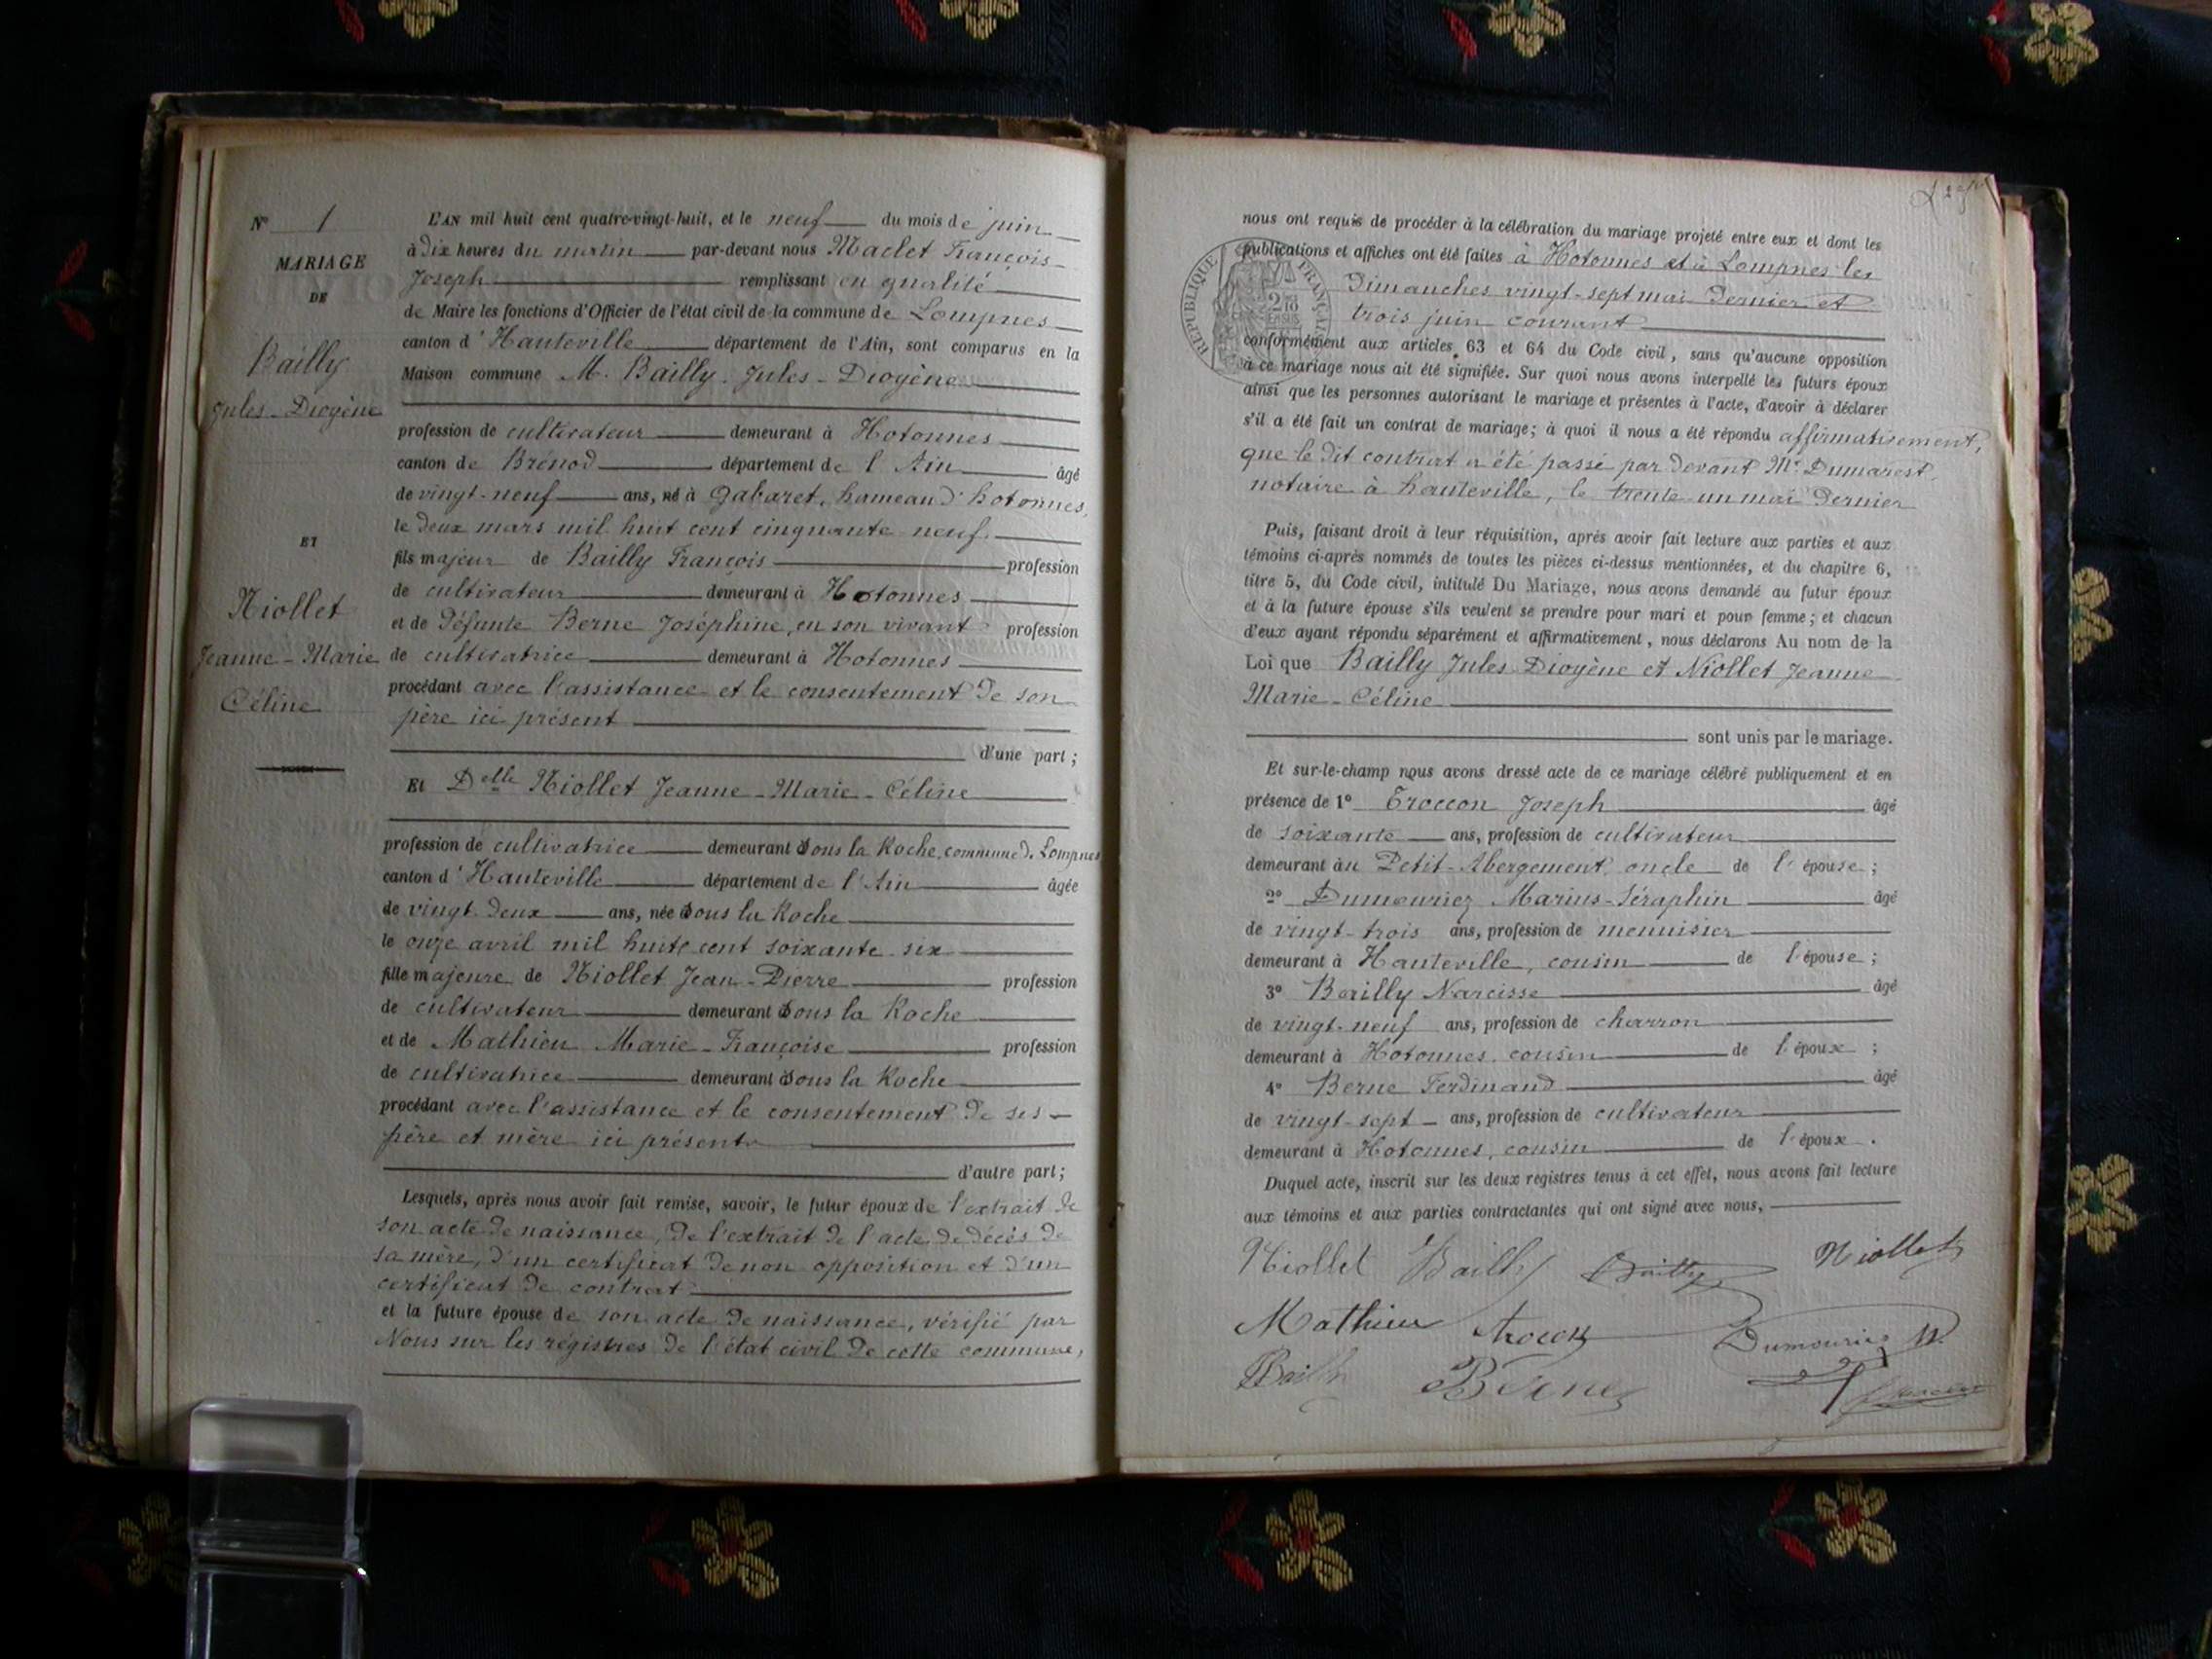 N° 1
MARIAGE
DE
Bailly
Jules-Diogène
ET
Niollet
Jeanne-Marie
Céline
L'AN mil huit cent quatre-vingt-huit, et le neuf du mois de juin
à Dix heures du matin par-devant nous Maclet François-
Joseph remplissant en qualité
de Maire les fonctions d'Officier de l'état civil de la commune de Lompnes
canton d'Hauteville département de l'Ain, sont comparus en la
Maison commune M. Bailly Jules-Diogène
profession de cultivateur demeurant à Hotonnes
canton de Brénod département de l'Ain âgé
de vingt-neuf ans, né à Gabaret, hameau d'hotonnes,
le deux mars mil huit cent cinquante-neuf
fils majeur de Bailly François profession
de cultivateur demeurant à Hotonnes
et de Défunte Berne Joséphine, en son vivant profession
de cultivatrice demeurant à Hotonnes
procédant avec l'assistance et le consentement de son
père ici présent
d'une part ;
Et Delle Niollet Jeanne-Marie-Céline
profession de cultivatrice demeurant Sous la Roche, commune d. Lompnes
canton d'Hauteville département de l'Ain âgée
de vingt-deux ans, née Sous la Roche
le onze avril mil huit cent soixante-six
fille majeure de Niollet Jean-Pierre profession
de cultivateur demeurant Sous la Roche
et de Mathieu Marie-Françoise profession
de cultivatrice demeurant Sous la Roche
procédant avec l'assistance et le consentement de ses
père et mère ici présents
d'autre part ;
Lesquels, après nous avoir fait remise, savoir, le futur époux de l'extrait de
son acte de naissance, de l'extrait de l'acte de décès de
sa mère, d'un certificat de non opposition et d'un
certificat de contrat
et la future épouse de son acte de naissance, vérifié par
Nous sur les régistres de l'état civil de cette commune,
nous ont requis de procéder à la célébration du mariage projeté entre eux et dont les
publications et affiches ont été faites à Hotonnes et à Lompnes les
Dimanches vingt-sept mai dernier et
trois juin courant
RÉPUBLIQUE FRANÇAISE
conformément aux articles 63 et 64 du Code civil, sans qu'aucune opposition
à ce mariage nous ait été signifiée. Sur quoi nous avons interpellé les futurs époux
ainsi que les personnes autorisant le mariage et présentes à l'acte, d'avoir à déclarer
s'il a été fait un contrat de mariage ; à quoi il nous a été répondu affirmativement,
que le dit contrat a été passé par devant Me Dumarest,
notaire à hauteville, le trente-un mai dernier
Puis, faisant droit à leur réquisition, après avoir fait lecture aux parties et aux
témoins ci-après nommés de toutes les pièces ci-dessus mentionnées, et du chapitre 6,
titre 5, du Code civil, intitulé Du Mariage, nous avons demandé au futur époux
et à la future épouse s'ils veulent se prendre pour mari et pour femme ; et chacun
d'eux ayant répondu séparément et affirmativement, nous déclarons Au nom de la
Loi que Bailly Jules-Diogène et Niollet Jeanne
Marie-Céline
sont unis par le mariage.
Et sur-le-champ nous avons dressé acte de ce mariage célébré publiquement et en
présence de 1° Troccon Joseph âgé
de soixante ans, profession de cultivateur
demeurant au Petit-Abergement, oncle de l'épouse ;
2° Dumouriez Marius-Séraphin âgé
de vingt-trois ans, profession de menuisier
demeurant à Hauteville, cousin de l'épouse ;
3° Bailly Narcisse âgé
de vingt-neuf ans, profession de charron
demeurant à Hotonnes, cousin de l'époux ;
4° Berne Ferdinand âgé
de vingt-sept ans, profession de cultivateur
demeurant à Hotonnes, cousin de l'époux.
Duquel acte, inscrit sur les deux registres tenus à cet effet, nous avons fait lecture
aux témoins et aux parties contractantes qui ont signé avec nous,
Niollet Bailly Bailly Niollet
Mathieu Trocon Dumouriez M.
Bailly Berne